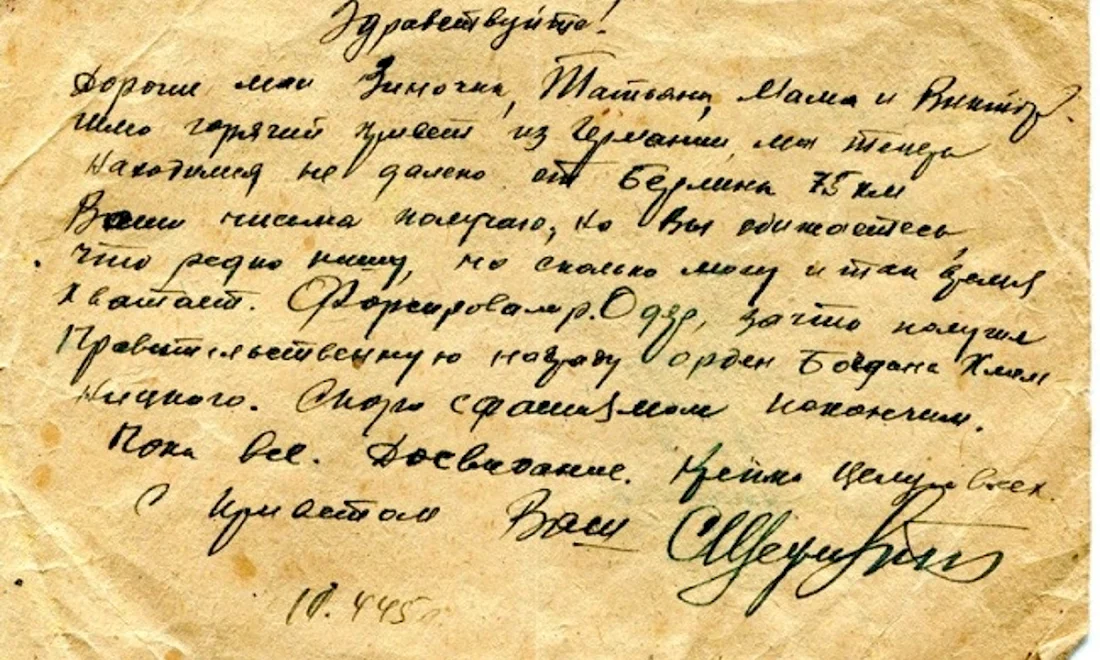 Здравствуйте!
Дорогие мои Зиночка, Татьяна, Мама и Виктор.
шлю горячий привет из Германии, мы теперь
находимся не далеко от Берлина 75 км
Ваши письма получаю, но Вы обижаетесь,
что редко пишу, но сколько могу и так время
хватает. Форсировали р. Одер, за что получил
Правительственную награду орден Богдана Хмель
ницкого. Скоро с фашизмом покончим.
Пока все. Досвидание. Крепко целую всех.
С приветом Ваш